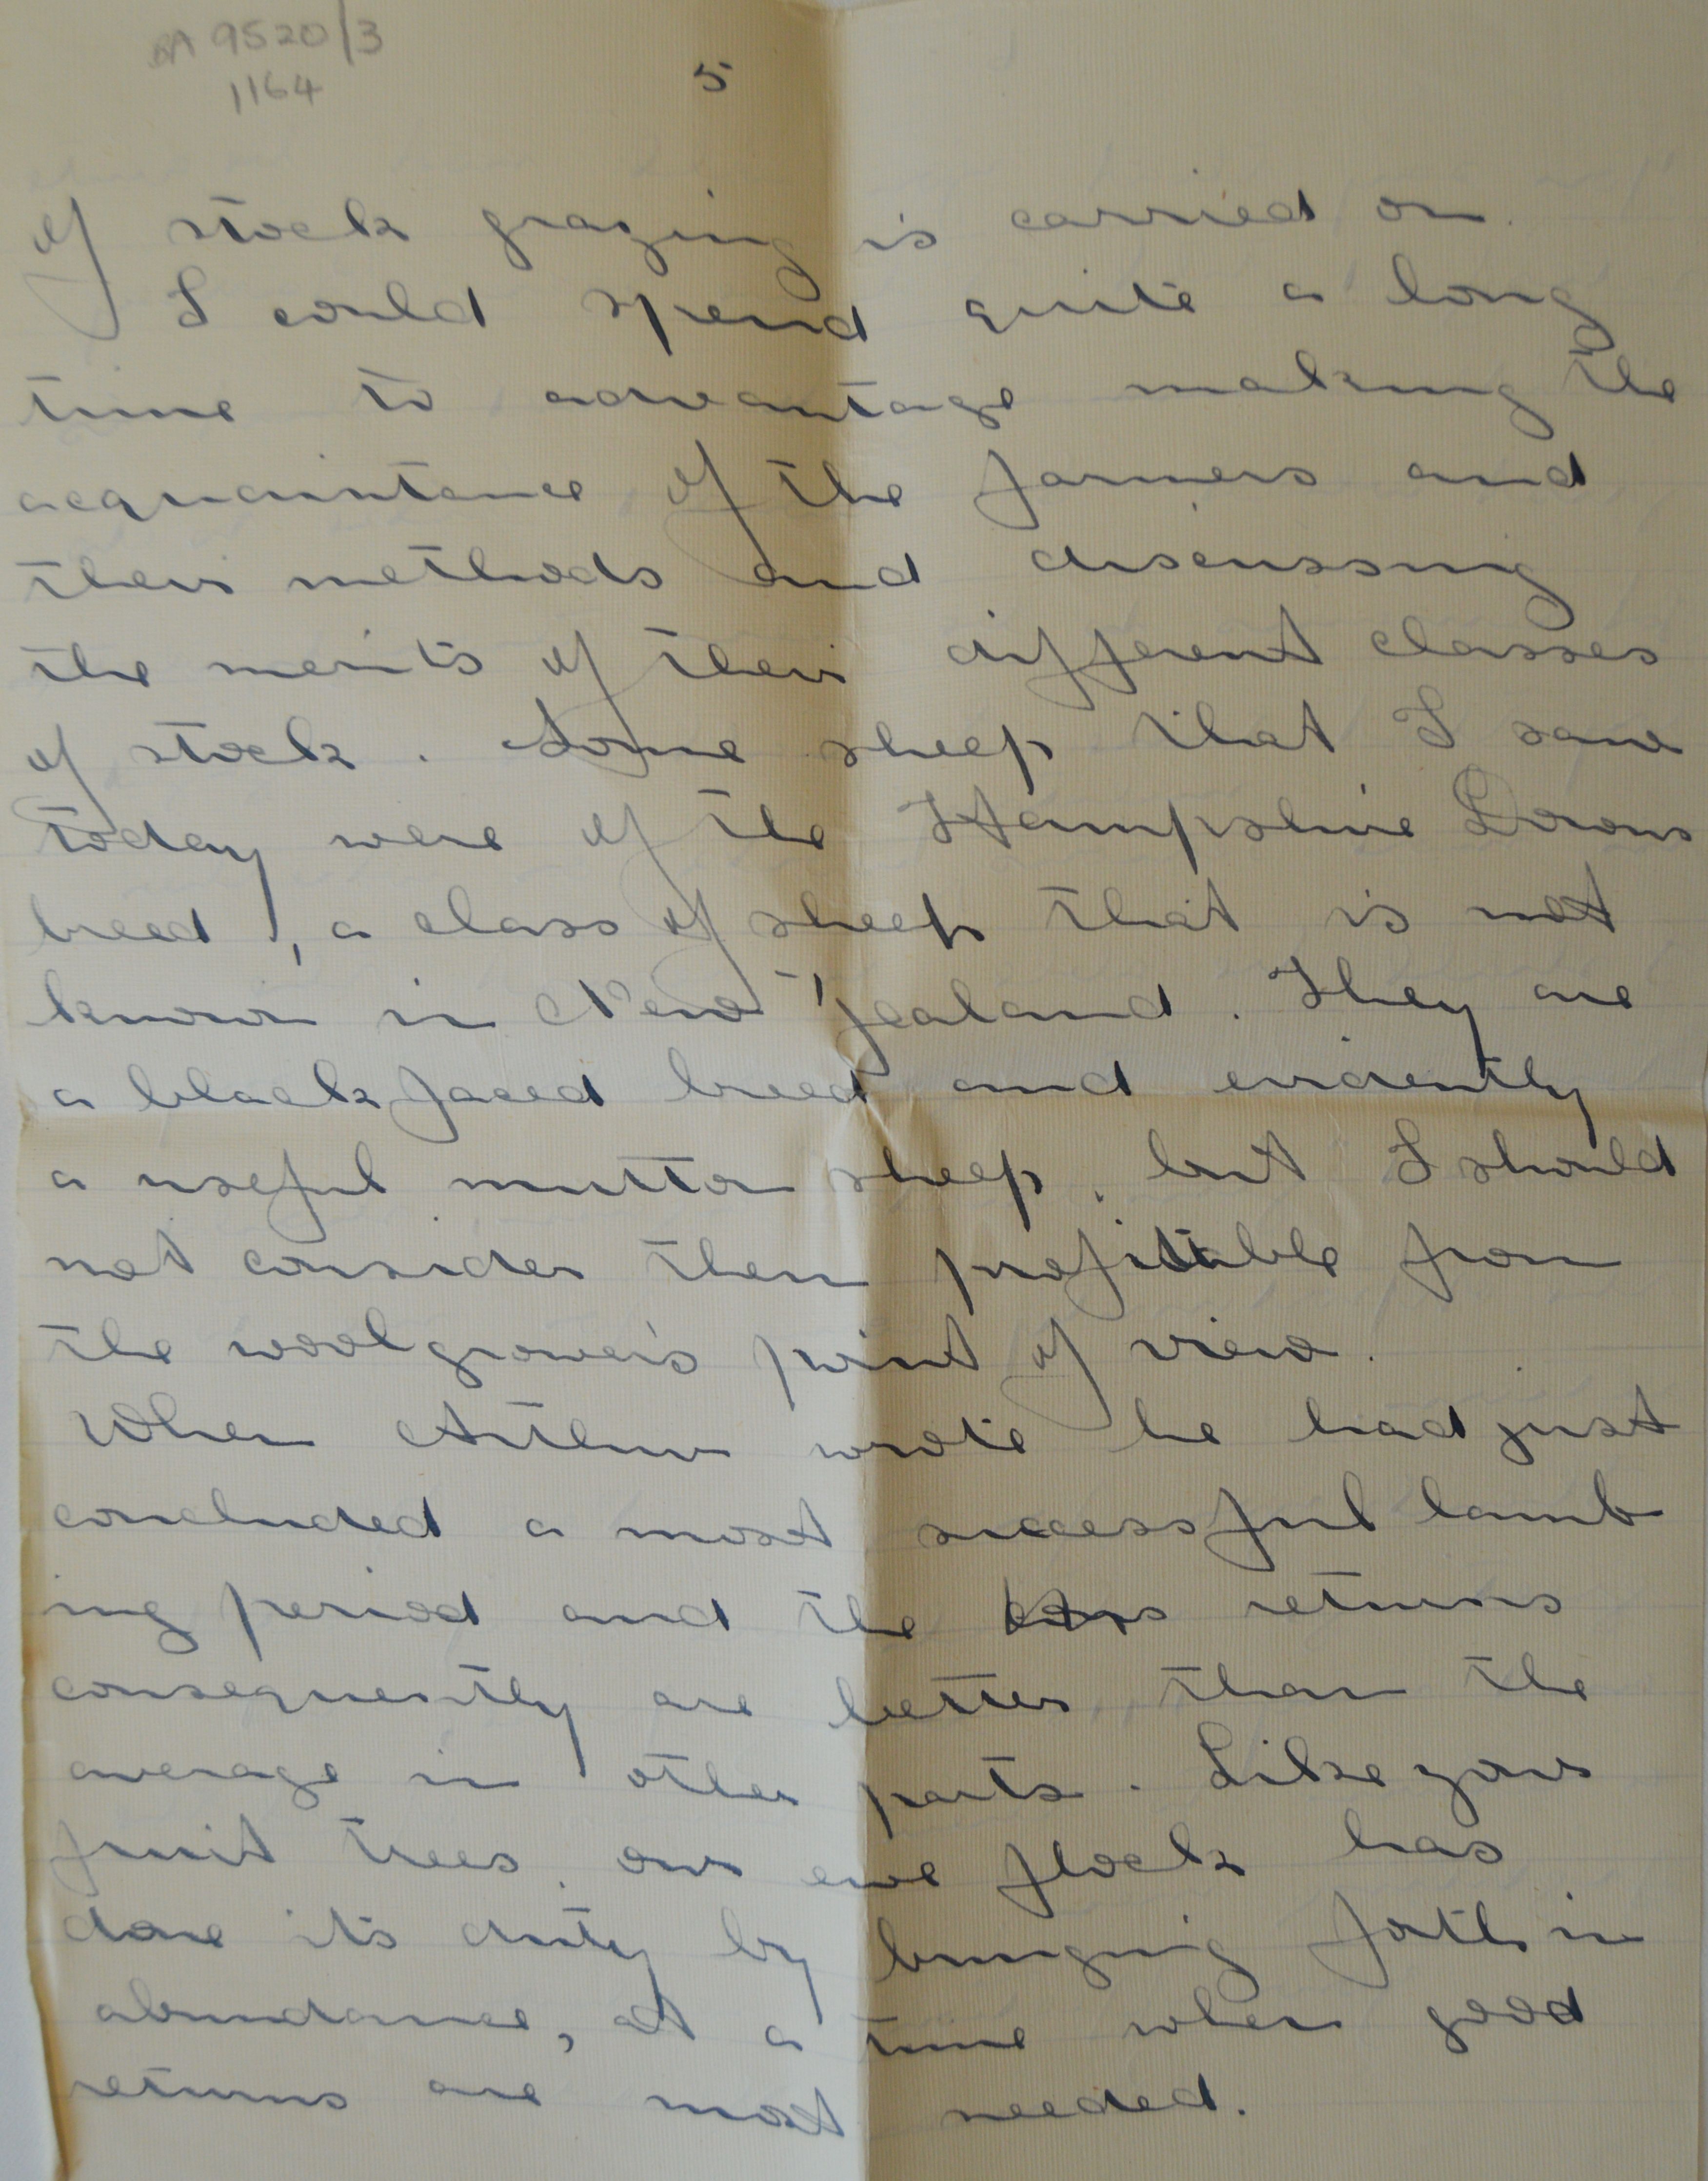 BA 9520/3
1164
5
of stock grazing is carried on.
I could spend quite a long
time to advantage making the
acquaintance of the farmers and
their methods and discussing
the merits of their different classes
of stock. Some sheep that I saw
today were of the Hampshire Downs
breed, a class of sheep that is not
known in New Zealand. They are
a black faced breed and evidently
a useful mutton sheep, but I should
not consider them profitable from
the woolgrower's point of view.
When Arthur wrote he had just
concluded a most successful lamb
ing period and the returns
consequently are better than the
average in other parts. Like your
fruit trees, our ewe flock has
done it's duty by bringing forth in
abundance, at a time when good
returns are most needed.